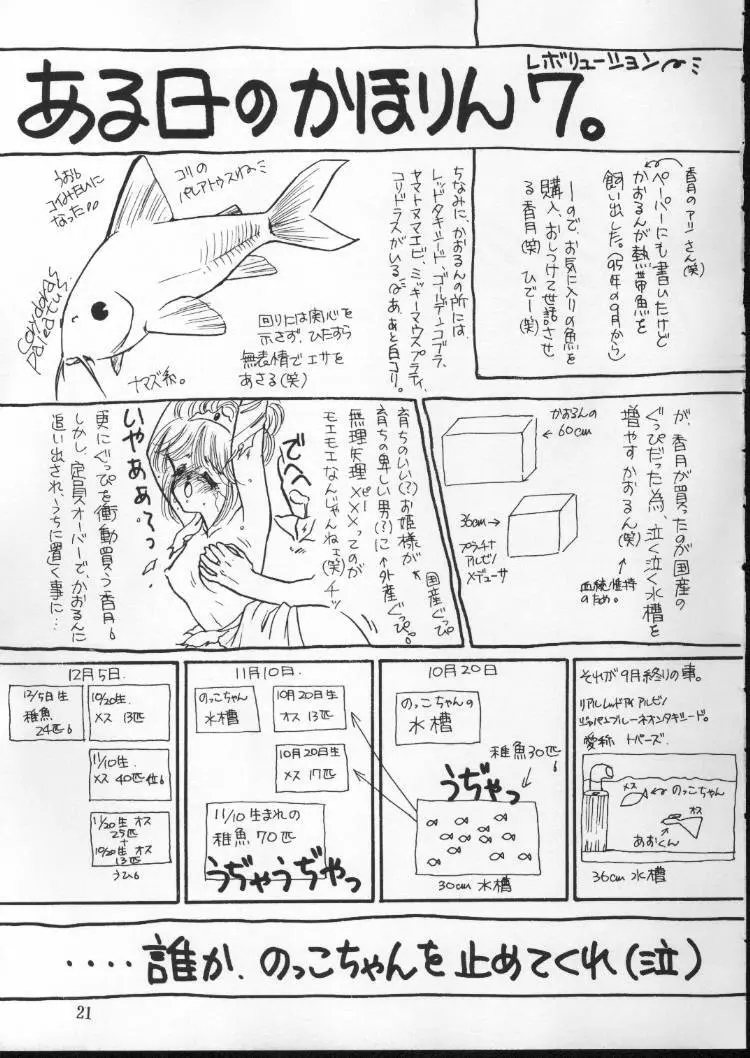 ある日のかほりん7。
レボリューション
香月のアツ さん(笑)
ペーパーにも書いたけど
かおるんが熱帯魚を
飼い出した。('95年の9月から)
ーので、お気に入りの魚を
購入、おしつけて世話させ
る香月(笑) ひでー(笑)
ちなみに、かおるんの所には、
レッドタキシード、ゴールデンコブラ、
ヤマトヌマエビ、ミッキーマウスプラティ、
コリドラスがいる あ、あと白コリ。
コリの
パレアトゥスね
うおぉ
コイみたいに
なった
Corydoras
Paleatus.
ナマズ系。
回りには関心を
示さず、ひたすら
無表情でエサを
あさる(笑)
が、香月が買ったのが国産の
ぐっぴだった為、泣く泣く水槽を
増やすかおるん(笑)
血統維持
のため。
かおるんの
60cm
36cm
プラチナ
アルビノ
メデューサ
育ちのいい(?)お姫様が
←国産ぐっぴ
育ちの卑しい男(?)に
←外産ぐっぴ。
無理矢理×××ってのが
ピー
モエモエなんじゃんねェ(笑)チッ
でへへ
いやああぁっ
更にぐっぴを衝動買う香月
しかし、定員オーバーで、かおるんに
追い出され、うちに置く事に…
それが9月終りの事。
リアルレッドアイアルビノ
ジャパンブルーネオンタキシード。
愛称 トパーズ。
メス
のっこちゃん
オス
あおくん
36cm 水槽
10月20日
のっこちゃんの
水槽
稚魚30匹
うぢゃっ
30cm 水槽
11月10日.
のっこちゃん
水槽
10月20日生
オス 13匹
10月20日生
メス 17匹
11/10 生まれの
稚魚 70匹
うぢゃうぢゃっ
12月5日.
12/5日生
稚魚
24匹
10/20生.
メス 13匹
11/10生
メス 40匹位
11/20生 オス
25匹
+
10/20生 オス
13匹
うひ
‥‥誰か、のっこちゃんを止めてくれ(泣)
21